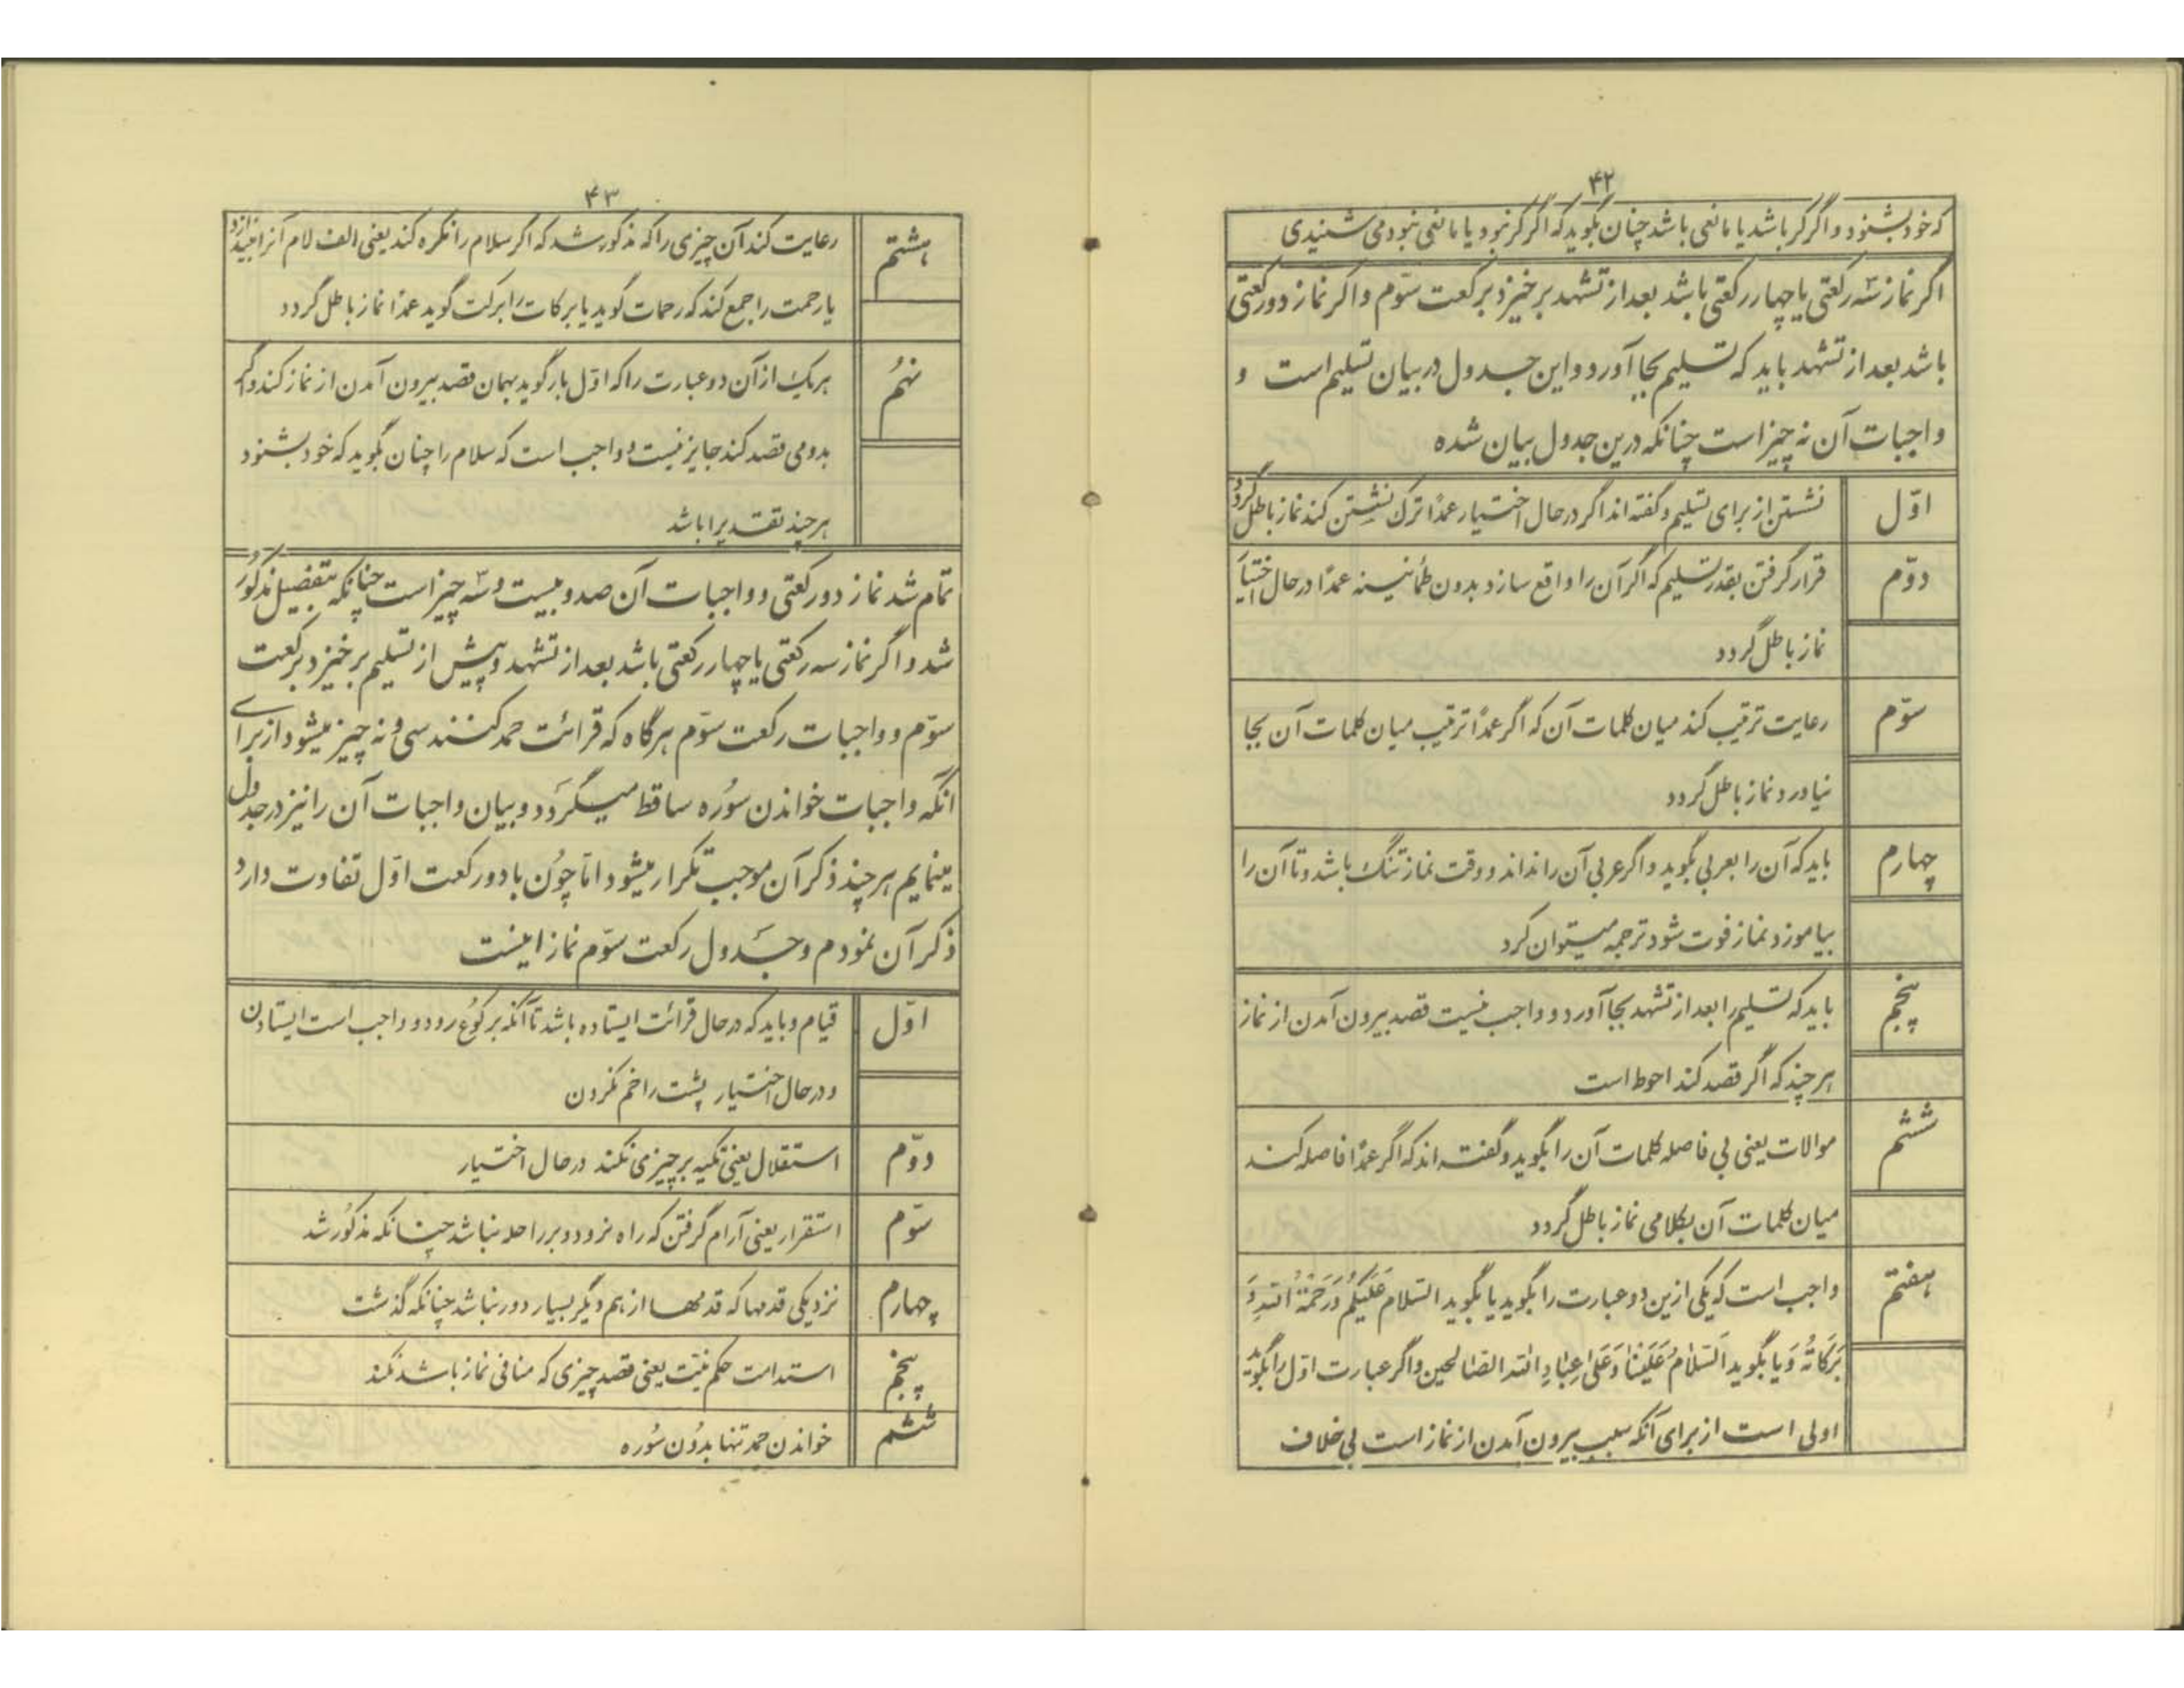 ۴۲
که خود بشنود و اگر کر باشد یا مانعی باشد چنان بگوید که اگر کر نبود یا مانعی نبود می شنیدی
اگر نماز سه رکعتی یا چهار رکعتی باشد بعد از تشهد برخیزد برکعت سوّم و اگر نماز دو رکعتی
باشد بعد از تشهد باید که تسلیم بجا آورد و این جدول در بیان تسلیم است و
واجبات آن نه چیز است چنانکه درین جدول بیان شده
اوّل نشستن از برای تسلیم و گفته اند اگر در حال اختیار عمداً ترک نشستن کند نماز باطل گردد
دوّم قرار گرفتن بقدر تسلیم که اگر آن را واقع سازد بدون طمأنینه عمداً در حال اختیار
نماز باطل گردد
سوّم رعایت ترتیب کند میان کلمات آن که اگر عمداً ترتیب میان کلمات آن بجا
نیاورد نماز باطل گردد
چهارم باید که آن را بعربی بگوید و اگر عربی آن را نداند و وقت نماز تنگ باشد و تا آن را
بیاموزد نماز فوت شود ترجمه میتوان کرد
پنجم باید که تسلیم را بعد از تشهد بجا آورد و واجب نیست قصد بیرون آمدن از نماز
هر چند که اگر قصد کند احوط است
ششم موالات یعنی بی فاصله کلمات آن را بگوید و گفته اند که اگر عمداً فاصله کند
میان کلمات آن بکلامی نماز باطل گردد
هفتم واجب است که یکی ازین دو عبارت را بگوید یا بگوید السّلام عَلَیْکُمْ وَرَحْمَةُ اللّهِ وَ
بَرَکَاتُهُ وَ یا بگوید اَلسَّلامُ عَلَیْنَا وَعَلیٰ عِبَادِ اللّه الصّالحین و اگر عبارت اوّل را بگوید
اولی است از برای آنکه سبب بیرون آمدن از نماز است بی خلاف
۴۳
هشتم رعایت کند آن چیزی را که مذکور شد که اگر سلام را نکره کند یعنی الف لام آنرا بیندازد
یا رحمت را جمع کند که رحمات گوید یا برکات را برکت گوید عمداً نماز باطل گردد
نهُم هر یک از آن دو عبارت را که اوّل بار گوید بهمان قصد بیرون آمدن از نماز کند و اگر
بدومی قصد کند جایز نیست و واجب است که سلام را چنان بگوید که خود بشنود
هر چند تقدیرا باشد
تمام شد نماز دو رکعتی و واجبات آن صد و بیست و سه چیز است چنانکه بتفصیل مذکور
شد و اگر نماز سه رکعتی یا چهار رکعتی باشد بعد از تشهد و پیش از تسلیم برخیزد برکعت
سوّم و واجبات رکعت سوّم هرگاه که قرائت حمد کنند سی و نه چیز میشود از برای
آنکه واجبات خواندن سُوره ساقط میگرَدد و بیان واجبات آن را نیز در جدول
مینمایم هر چند ذکر آن موجب تکرار میشود امّا چوُن با دو رکعت اوّل تفاوت دارد
ذکر آن نمودم و جَدول رکعت سوّم نماز اینست
اوّل قیام و باید که در حال قرائت ایستاده باشد تا آنکه برکوُع رود و واجب است ایستادن
و در حال اختیار پشت را خم نکردن
دوّم استقلال یعنی تکیه بر چیزی نکند در حال اختیار
سوّم استقرار یعنی آرام گرفتن که راه نرود و بر راحله نباشد چنانکه مذکوُر شد
چهارم نزدیکی قدمها که قدمها از هم دیگر بسیار دور نباشد چنانکه گذشت
پنجم استدامت حکم نیّت یعنی قصد چیزی که منافی نماز باشد نکند
ششم خواندن حمد تنها بدوُن سُوره